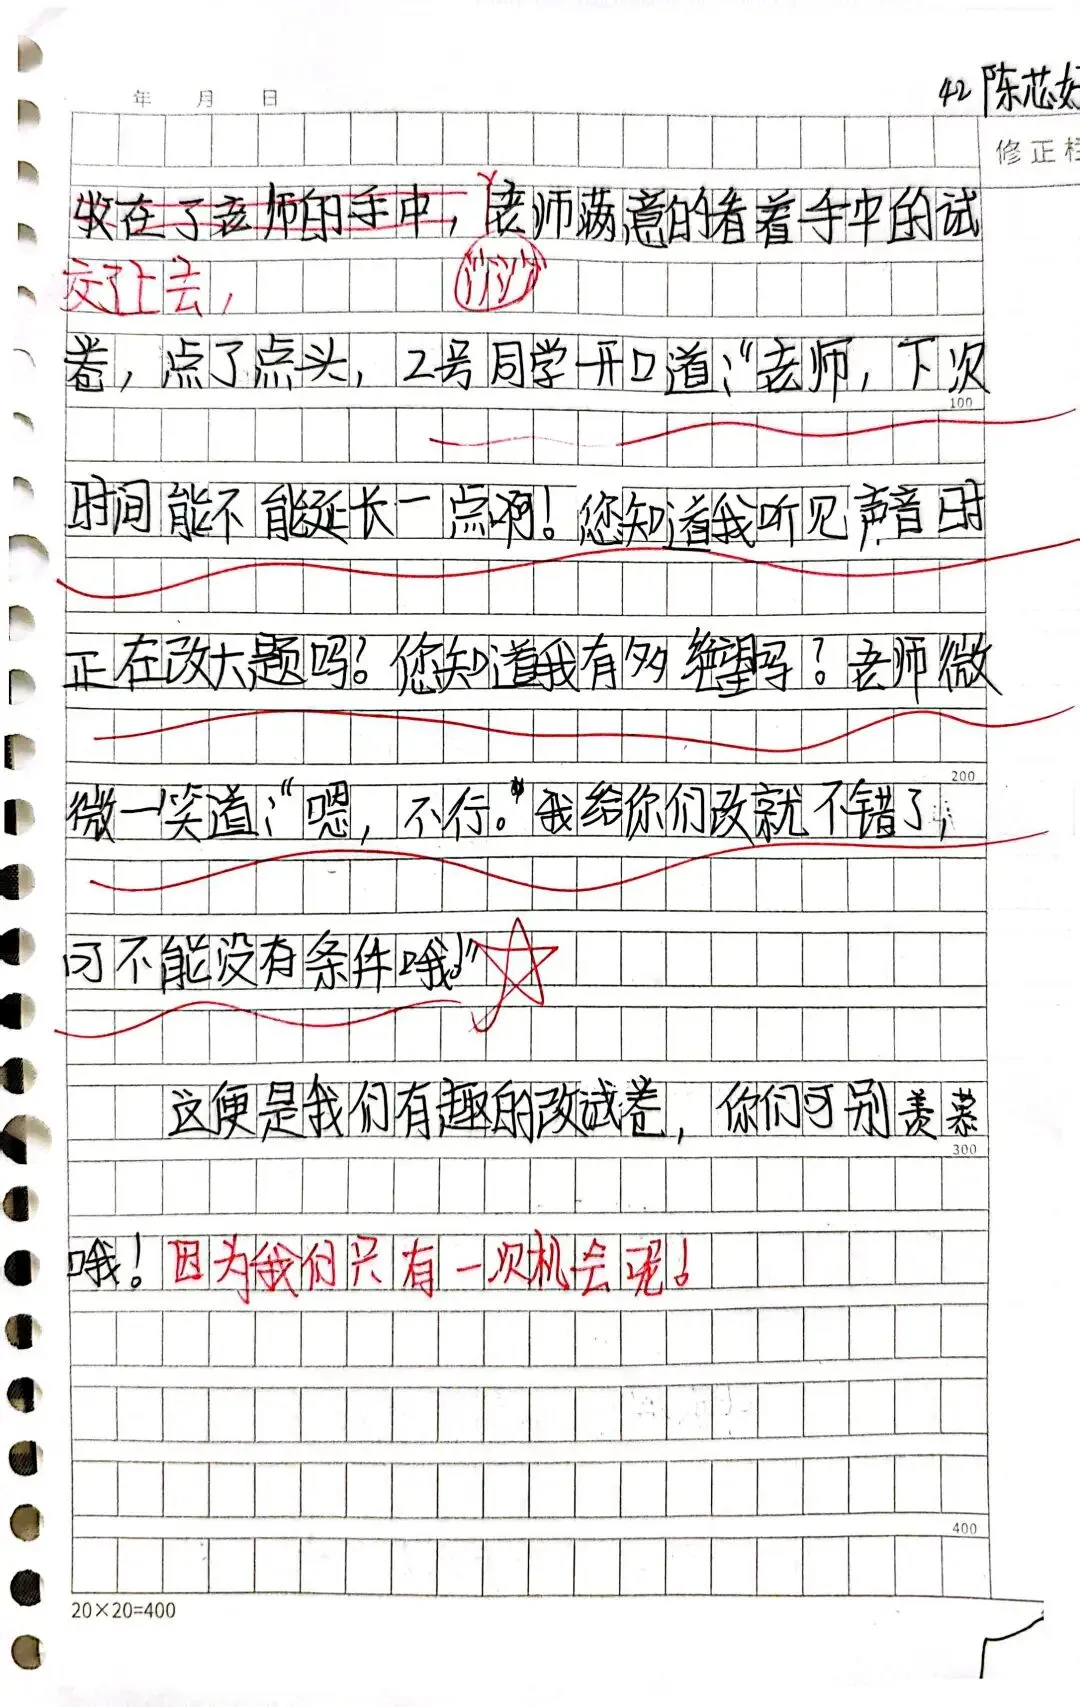 年 月 日
42 陈芯妤
修正栏
收在了老师的手中，老师满意的看着手中的试
交了上去，
卷，点了点头，2号同学开口道："老师，下次
100
时间能不能延长一点啊！您知道我听见声音时
正在改大题吗？您知道我有多绝望吗？老师微
200
微一笑道："嗯，不行。"我给你们改就不错了，
可不能没有条件哦！"
这便是我们有趣的改试卷，你们可别羡慕
300
哦！因为我们只有一次机会呢！
400
20×20=400